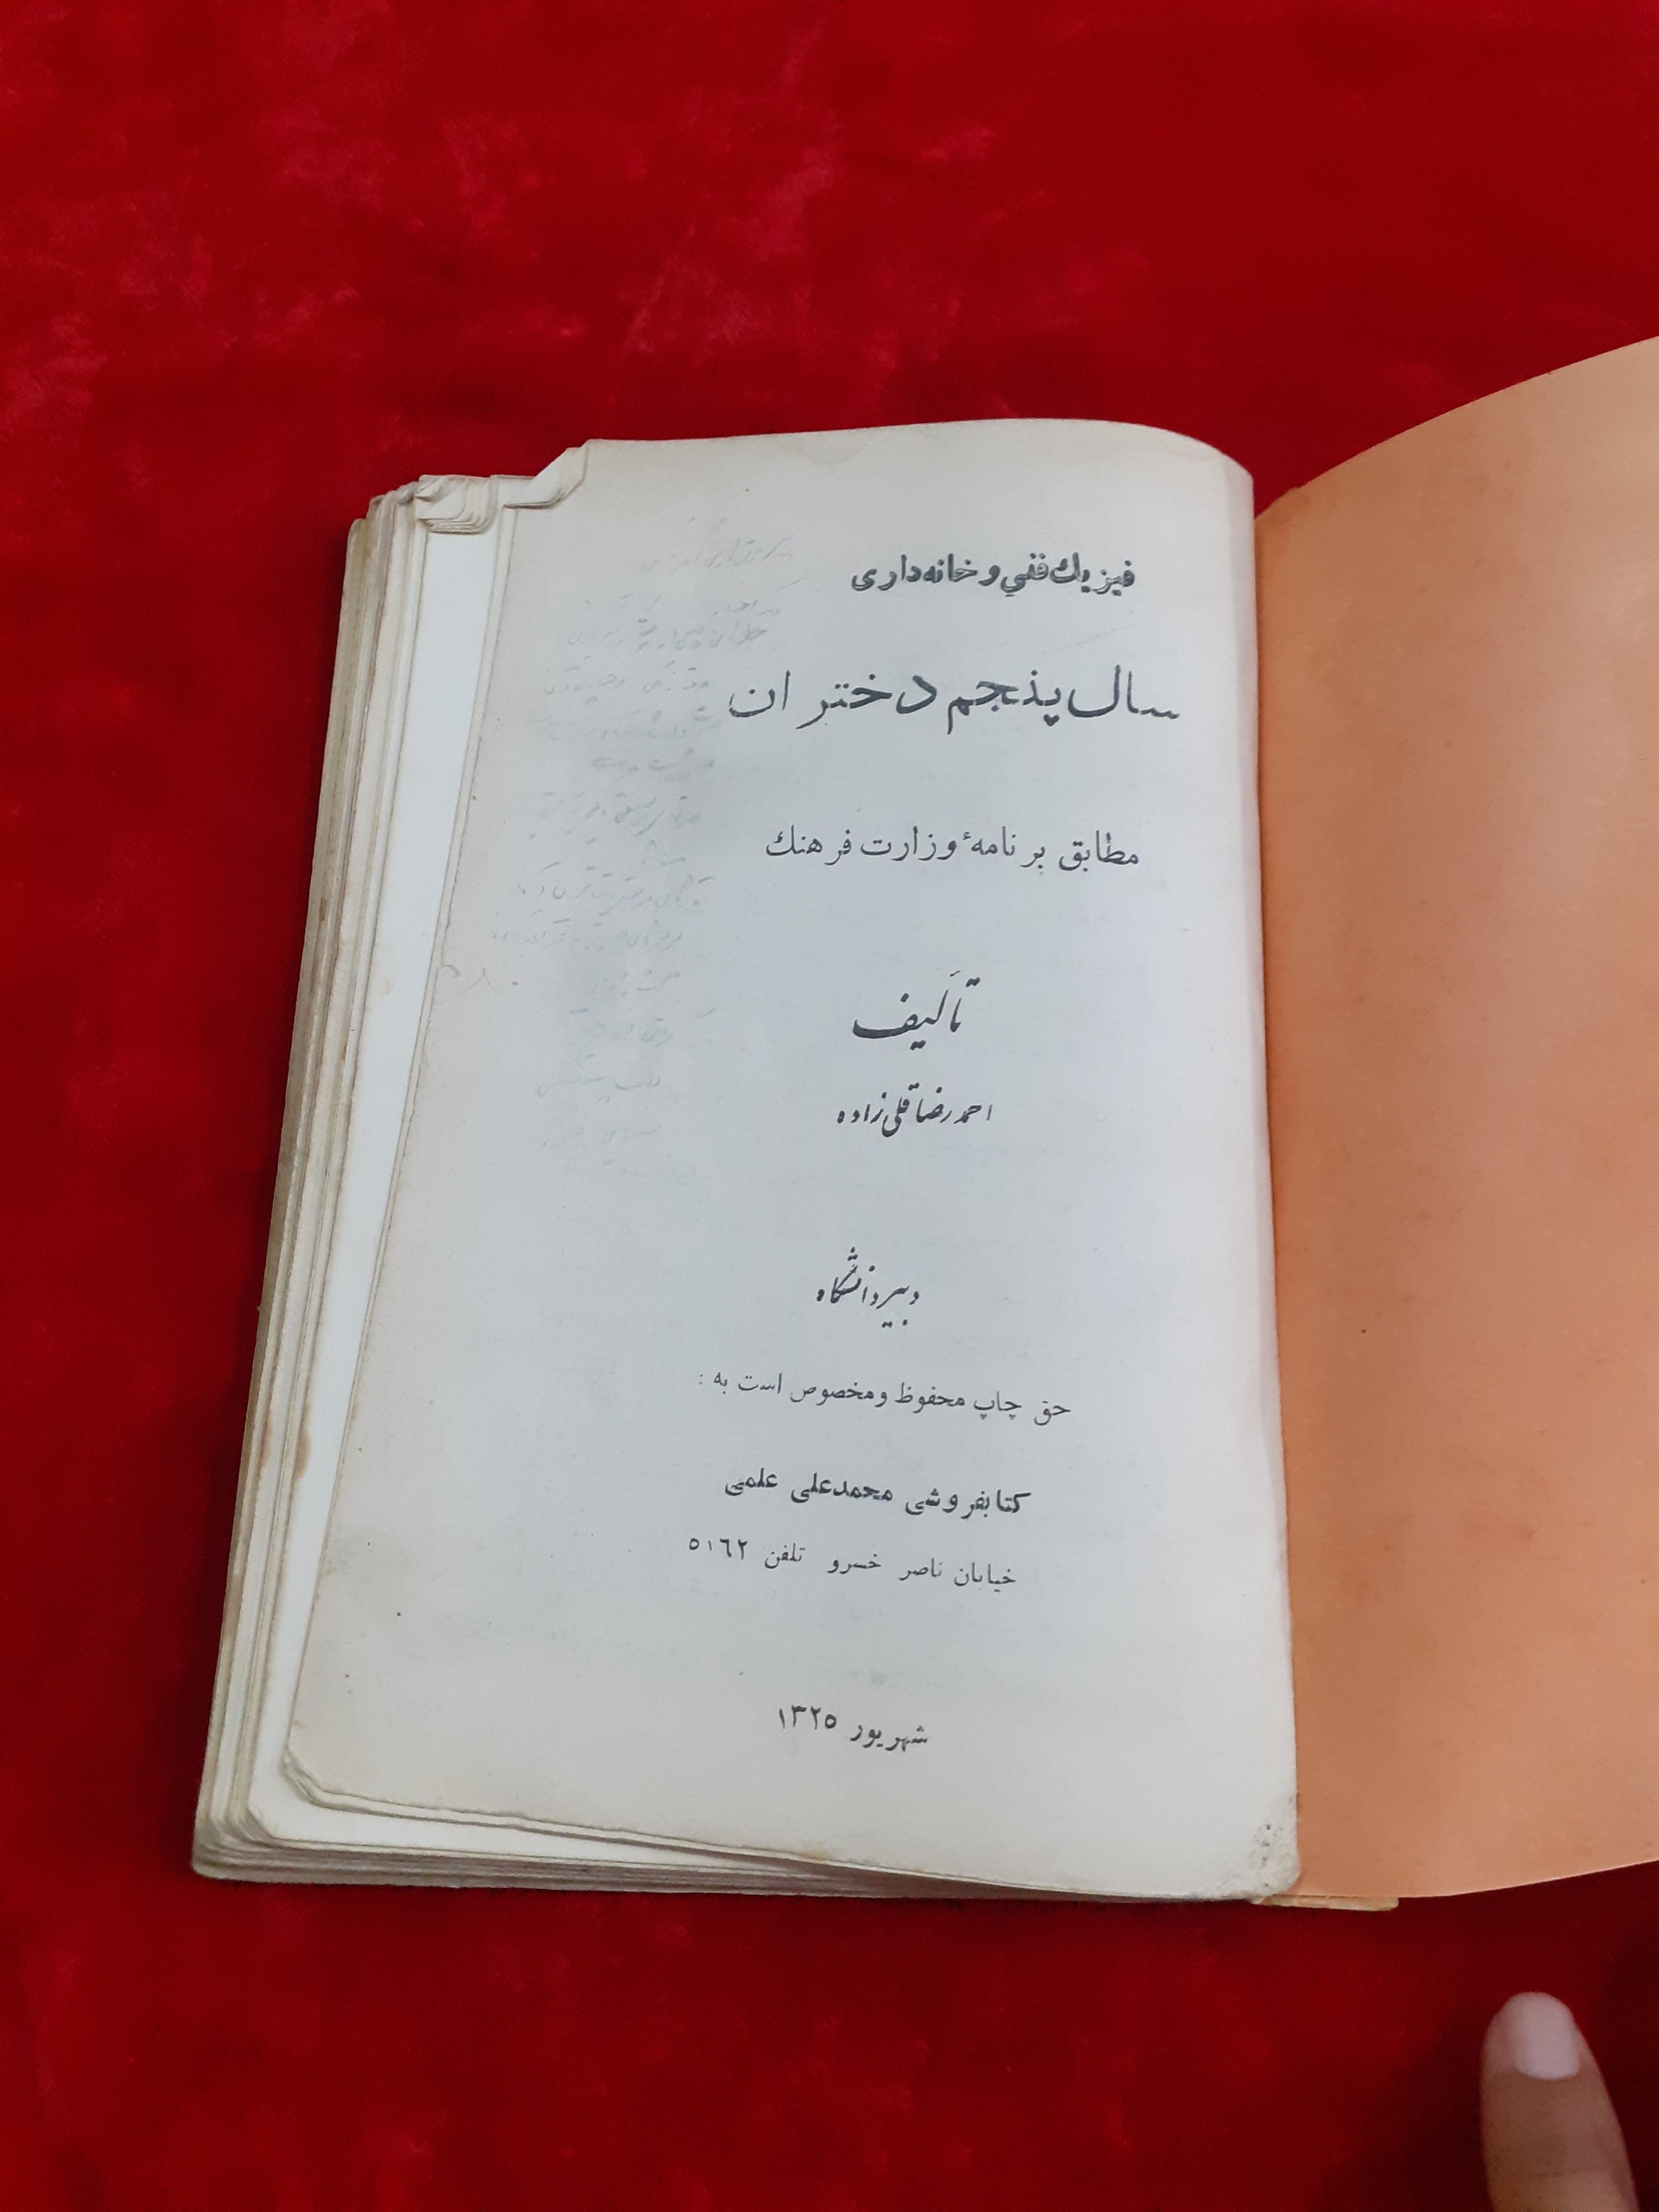 فیزیك فنی و خانه‌داری
سال پنجم دختران
مطابق برنامهٔ وزارت فرهنك
تألیف
احمد رضاقلی‌زاده
دبیر دانشگاه
حق چاپ محفوظ و مخصوص است به :
کتابفروشی محمدعلی علمی
خیابان ناصر خسرو تلفن ٥١٦٢
شهریور ١٣٢٥